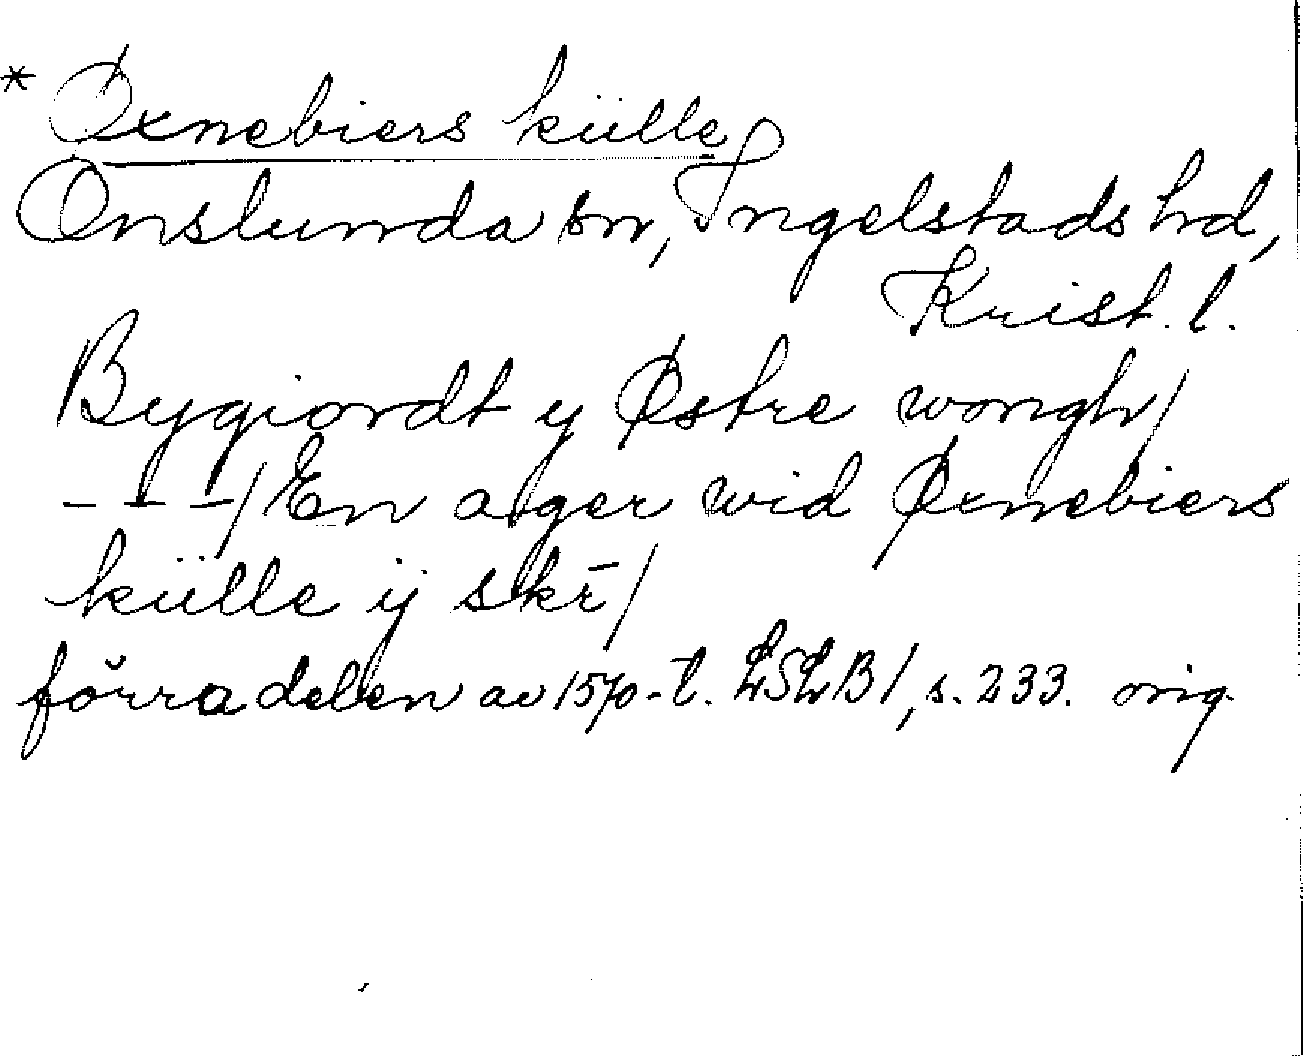 * Øxnebiers külle
Onslunda sn, Ingelstads hd,
Krist. l.
Bygiordt y Østre wongh/
- - -/ En ager wid Øxnebiers
külle ij skr̄/
förra delen av 1570-t. LSLB1, s. 233. orig.